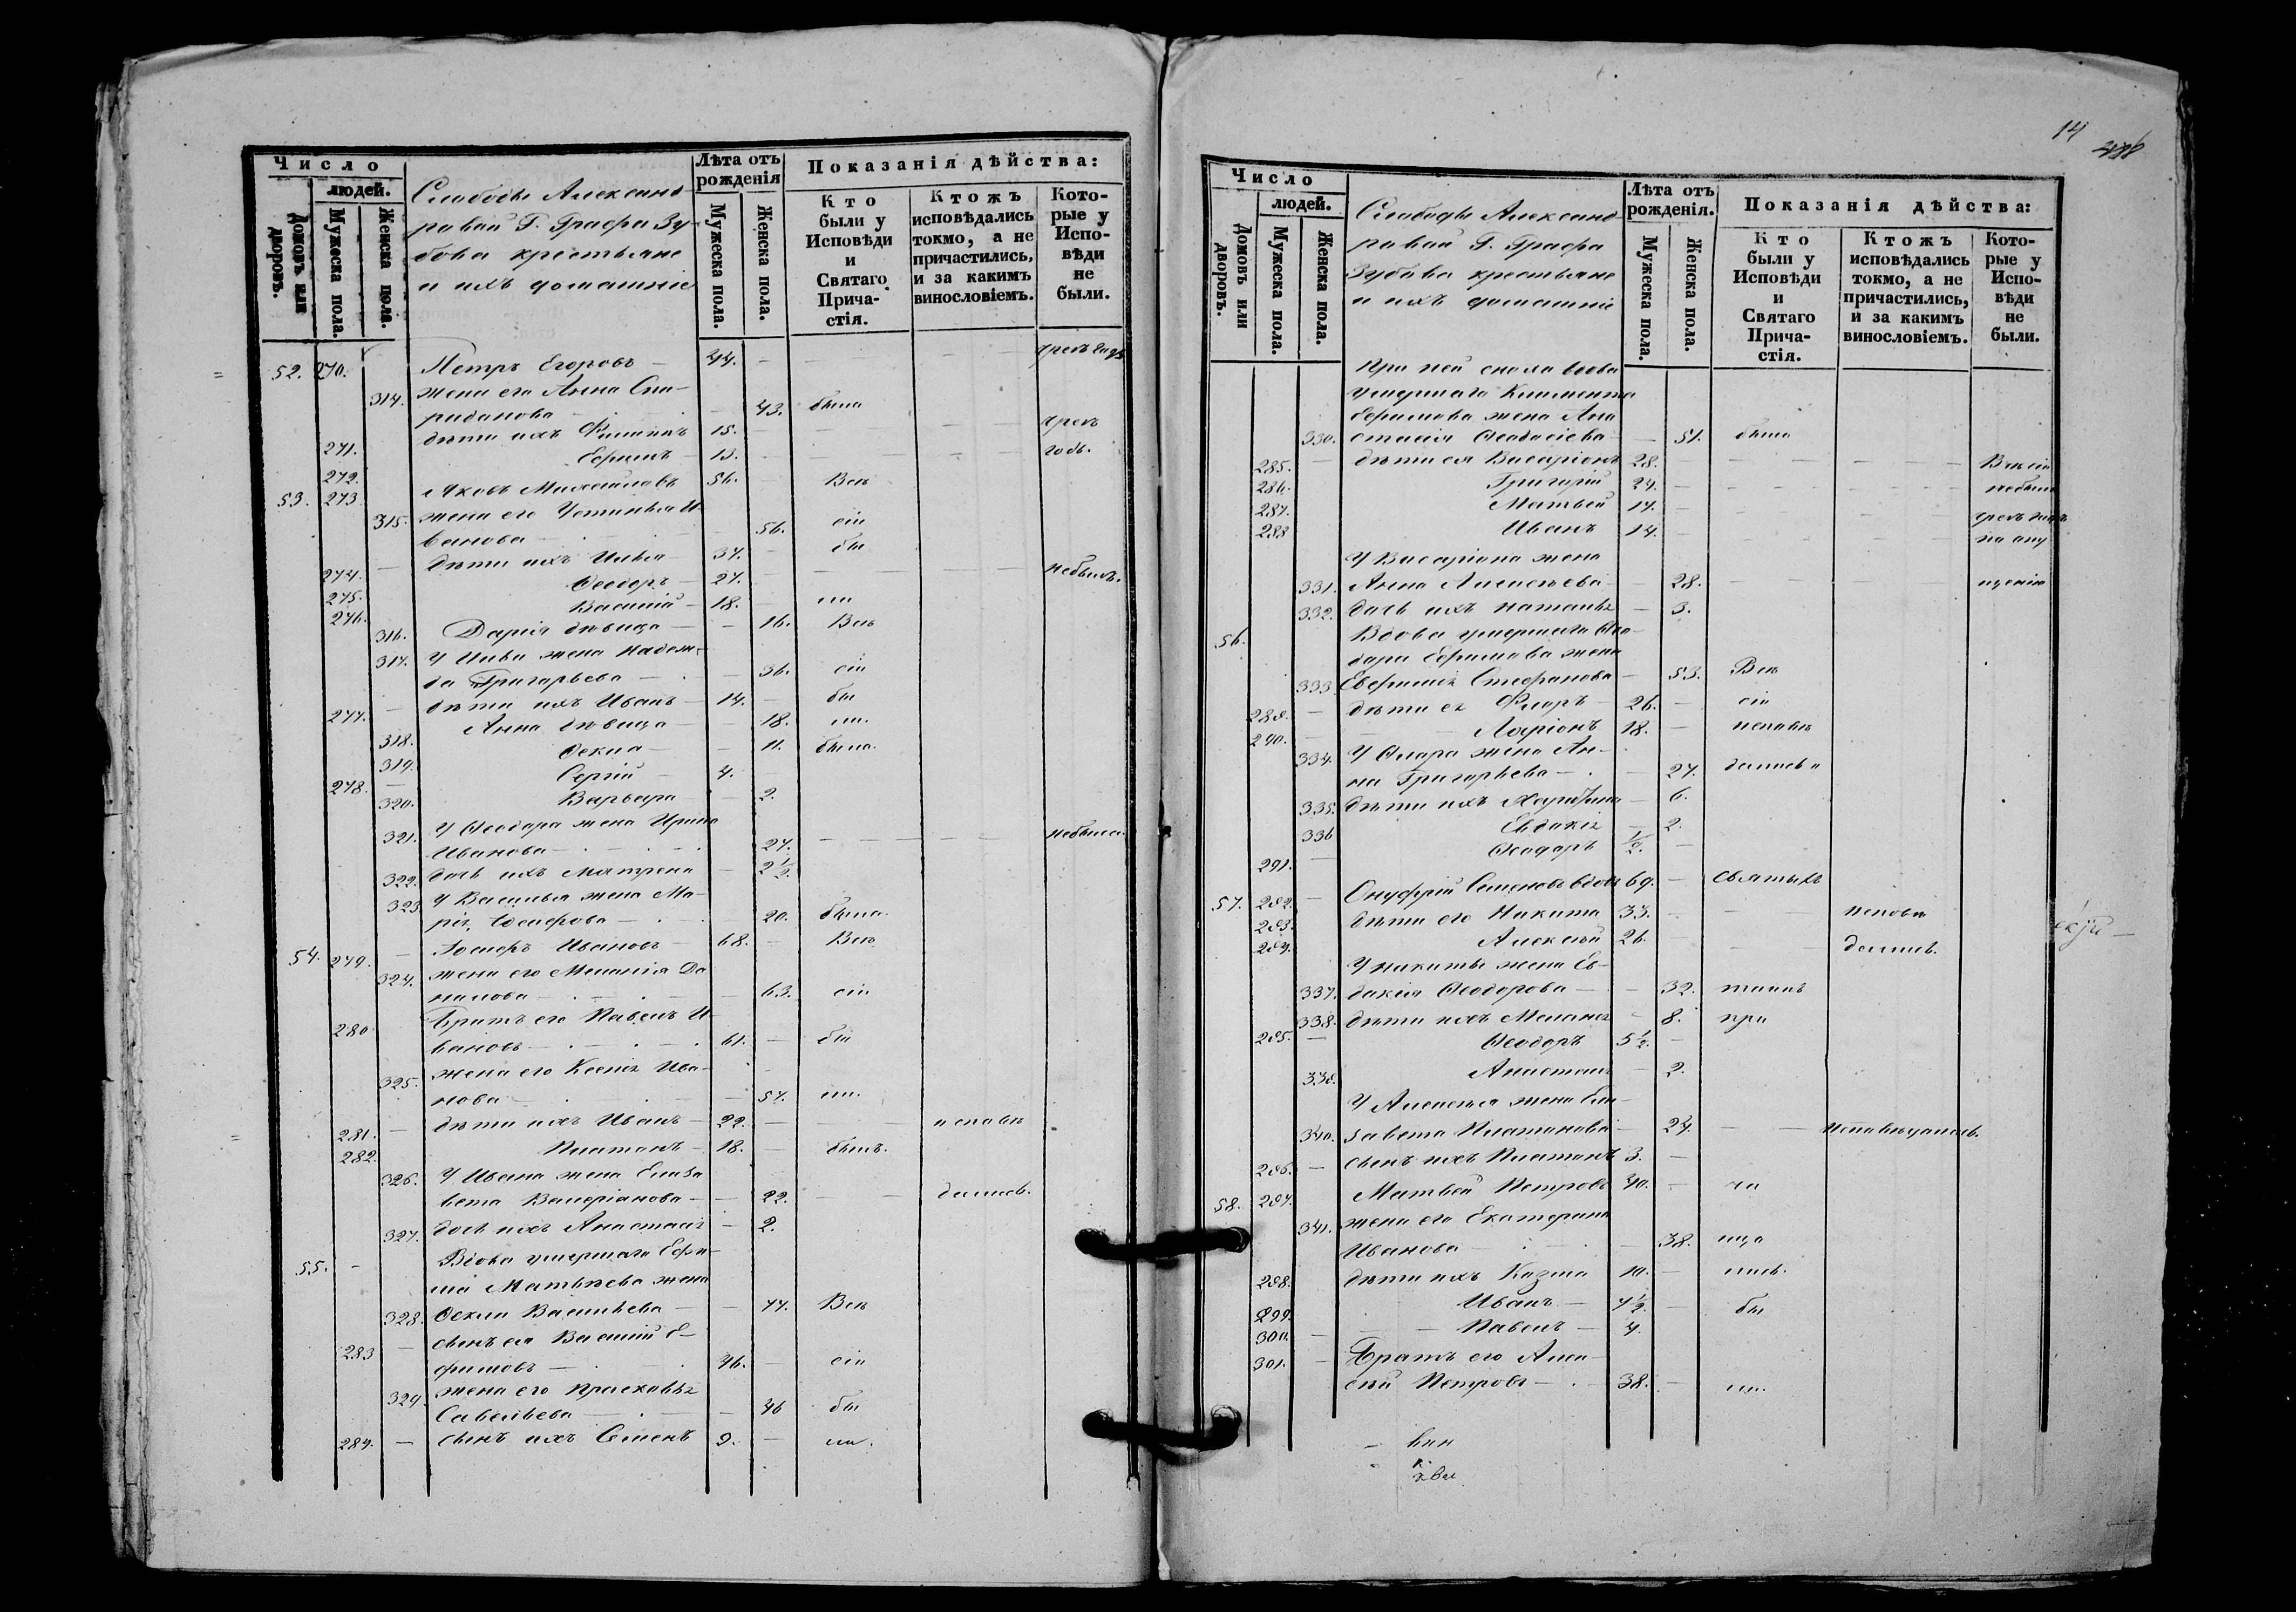 Число
людей.
Домовъ или дворовъ.
Мужеска пола.
Женска пола.
Слабоды Александ
ровой Г. Графа Зу-
бова крестьяне
и ихъ домашніе
Лѣта отъ рожденія
Мужеска пола.
Женска пола.
Показанія дѣйства:
Кто были у Исповѣди и Святаго Прича-стія.
Ктожъ исповѣдались токмо, а не причастились, и за какимъ винословіемъ.
Кото-рые у Испо-вѣди не были.
52. 270. Петръ Егоровъ — 44. —
314. жена его Анна Спи-
ридонова — — 43. была
271. дѣти ихъ Филиппъ 15. — чрезъ
272. Ефимъ — 13. — годъ.
53. 273. Яковъ Михайловъ 56. Всѣ
315. жена его Устинья И-
ванова — 56. сіи
274. — дѣти ихъ Илья — 34. — бы
275. Ѳеодоръ — 27. — небылъ.
276. Василій — 18. — ли
316. Дарія дѣвица — — 16. Всѣ
317. У Ильи жена Надеж-
да Григорьева — — 36. сіи
277. — дѣти ихъ Иванъ — 14. — бы
318. Анна дѣвица — — 18. ли.
319. Ѳекла — — 11. была.
278. — Сергій — 4. —
320. Варвара — 2.
321. У Ѳеодора жена Ирина
Иванова — 27. — — — небыла.
322. дочь ихъ Матрена — 2 1/2.
323. У Василья жена Ма-
рія Іосифова — 20. была.
54. 279. — Іосифъ Ивановъ — 68. — Всѣ
324. жена его Меланія Да
нилова — — 63. сіи
280 Братъ его Павелъ И-
вановъ — 61. — бы
325. жена его Ксенія Ива-
нова — — 57. ли.
281. — дѣти ихъ Иванъ — 22. — — исповѣ
282. Платонъ — 18. — былъ.
326. У Ивана жена Елиза
вета Валеріанова — — 22. — дались.
327. дочь ихъ Анастасія — 2.
55. — Вдова умершаго Ефи-
ма Матвѣева жена
328. Ѳекла Васильева — — 77. Всѣ
283 — сынъ ея Василій Е-
фимовъ — 46. — сіи
329. жена его Прасковья
Савельева — — 46 бы
284. — сынъ ихъ Семенъ 9. — ли.
14
Число
людей.
Домовъ или дворовъ.
Мужеска пола.
Женска пола.
Слабоды Александ
ровой Г. Графа
Зубова крестьяне
и ихъ домашніе
Лѣта отъ рожденія.
Мужеска пола.
Женска пола.
Показанія дѣйства:
Кто были у Исповѣди и Святаго Прича-стія.
Ктожъ исповѣдались токмо, а не причастились, и за какимъ винословіемъ.
Кото-рые у Испо-вѣди не были.
При ней сноха вдова
умершаго Климента
Ефимова жена Ана
330. стасія Ѳеодосіева — — 51. была
285. — дѣти ея Висаріонъ 28. — Всѣ сіи
286. Григорій 24. — небыли
287. Матвей 17. —
288 Иванъ 14. — по опу
У Висаріона жена
331. Анна Алексѣева — — 28. — щенію
332. дочь ихъ Наталья — 3.
56. Вдова умершаго Ѳео-
дора Ефимова жена
333. Евфимія Стефанова — 53. Всѣ
289. — дѣти ея Флоръ — 26. — сіи
290. — Ларіонъ 18. — исповѣ
334. У Флора жена Ан-
на Григорьева — — 27. дались и
335. дѣти ихъ — 6.
336 Евдокія — 2.
291. — Ѳеодоръ 1/2. —
57. 292. — Онуфрій Семеновъ вдовъ 69. — святыхъ
293. дѣти его Никита 33. — — исповѣ
294. Алексѣй 26. — — дались.
У Никиты жена Ев-
337. докія Ѳеодорова — — 32. таинъ
338. дѣти ихъ Меланія — 8. при
295. — Ѳеодоръ 5 1/2. —
339. Анастасія — 2.
У Алексѣя жена Ели-
340. завета Платонова — 24. — — исповѣдалась.
296. — сынъ ихъ Платонъ 3. —
58. 297. Матвей Петровъ 40. — ча
341. жена его Екатерина
Иванова — — 38. ща
298. дѣти ихъ Козма 10. — лись.
299. Иванъ — 7 1/2. — бы
300. — Павелъ — 4.
301. — Братъ его Алек-
сѣй Петровъ — 38. — ли.